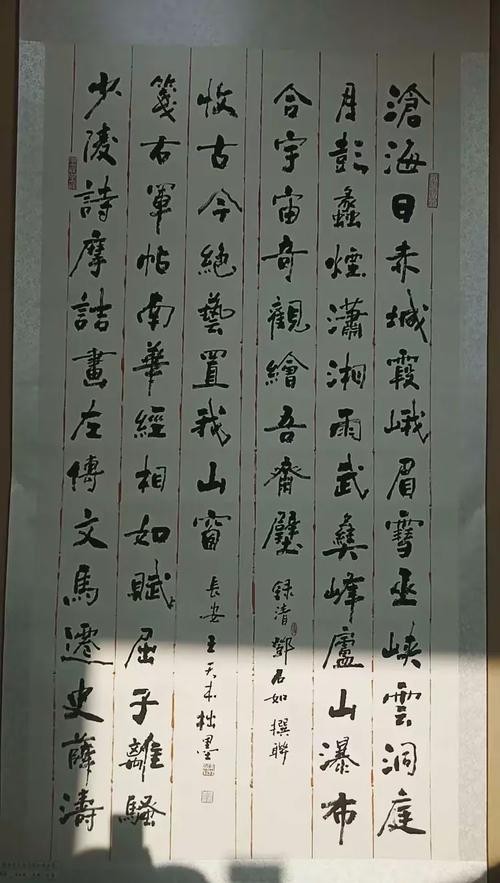 滄海日赤城霞峨眉雪巫峽雲洞庭
月彭蠡煙瀟湘雨武彝峰廬山瀑布
合宇宙奇觀繪吾齋壁
錄清鄧石如撰聯
少陵詩摩詰畫左傳文馬遷史薛濤
箋右軍帖南華經相如賦屈子離騷
收古今絕藝置我山窗
長安王天本拙墨